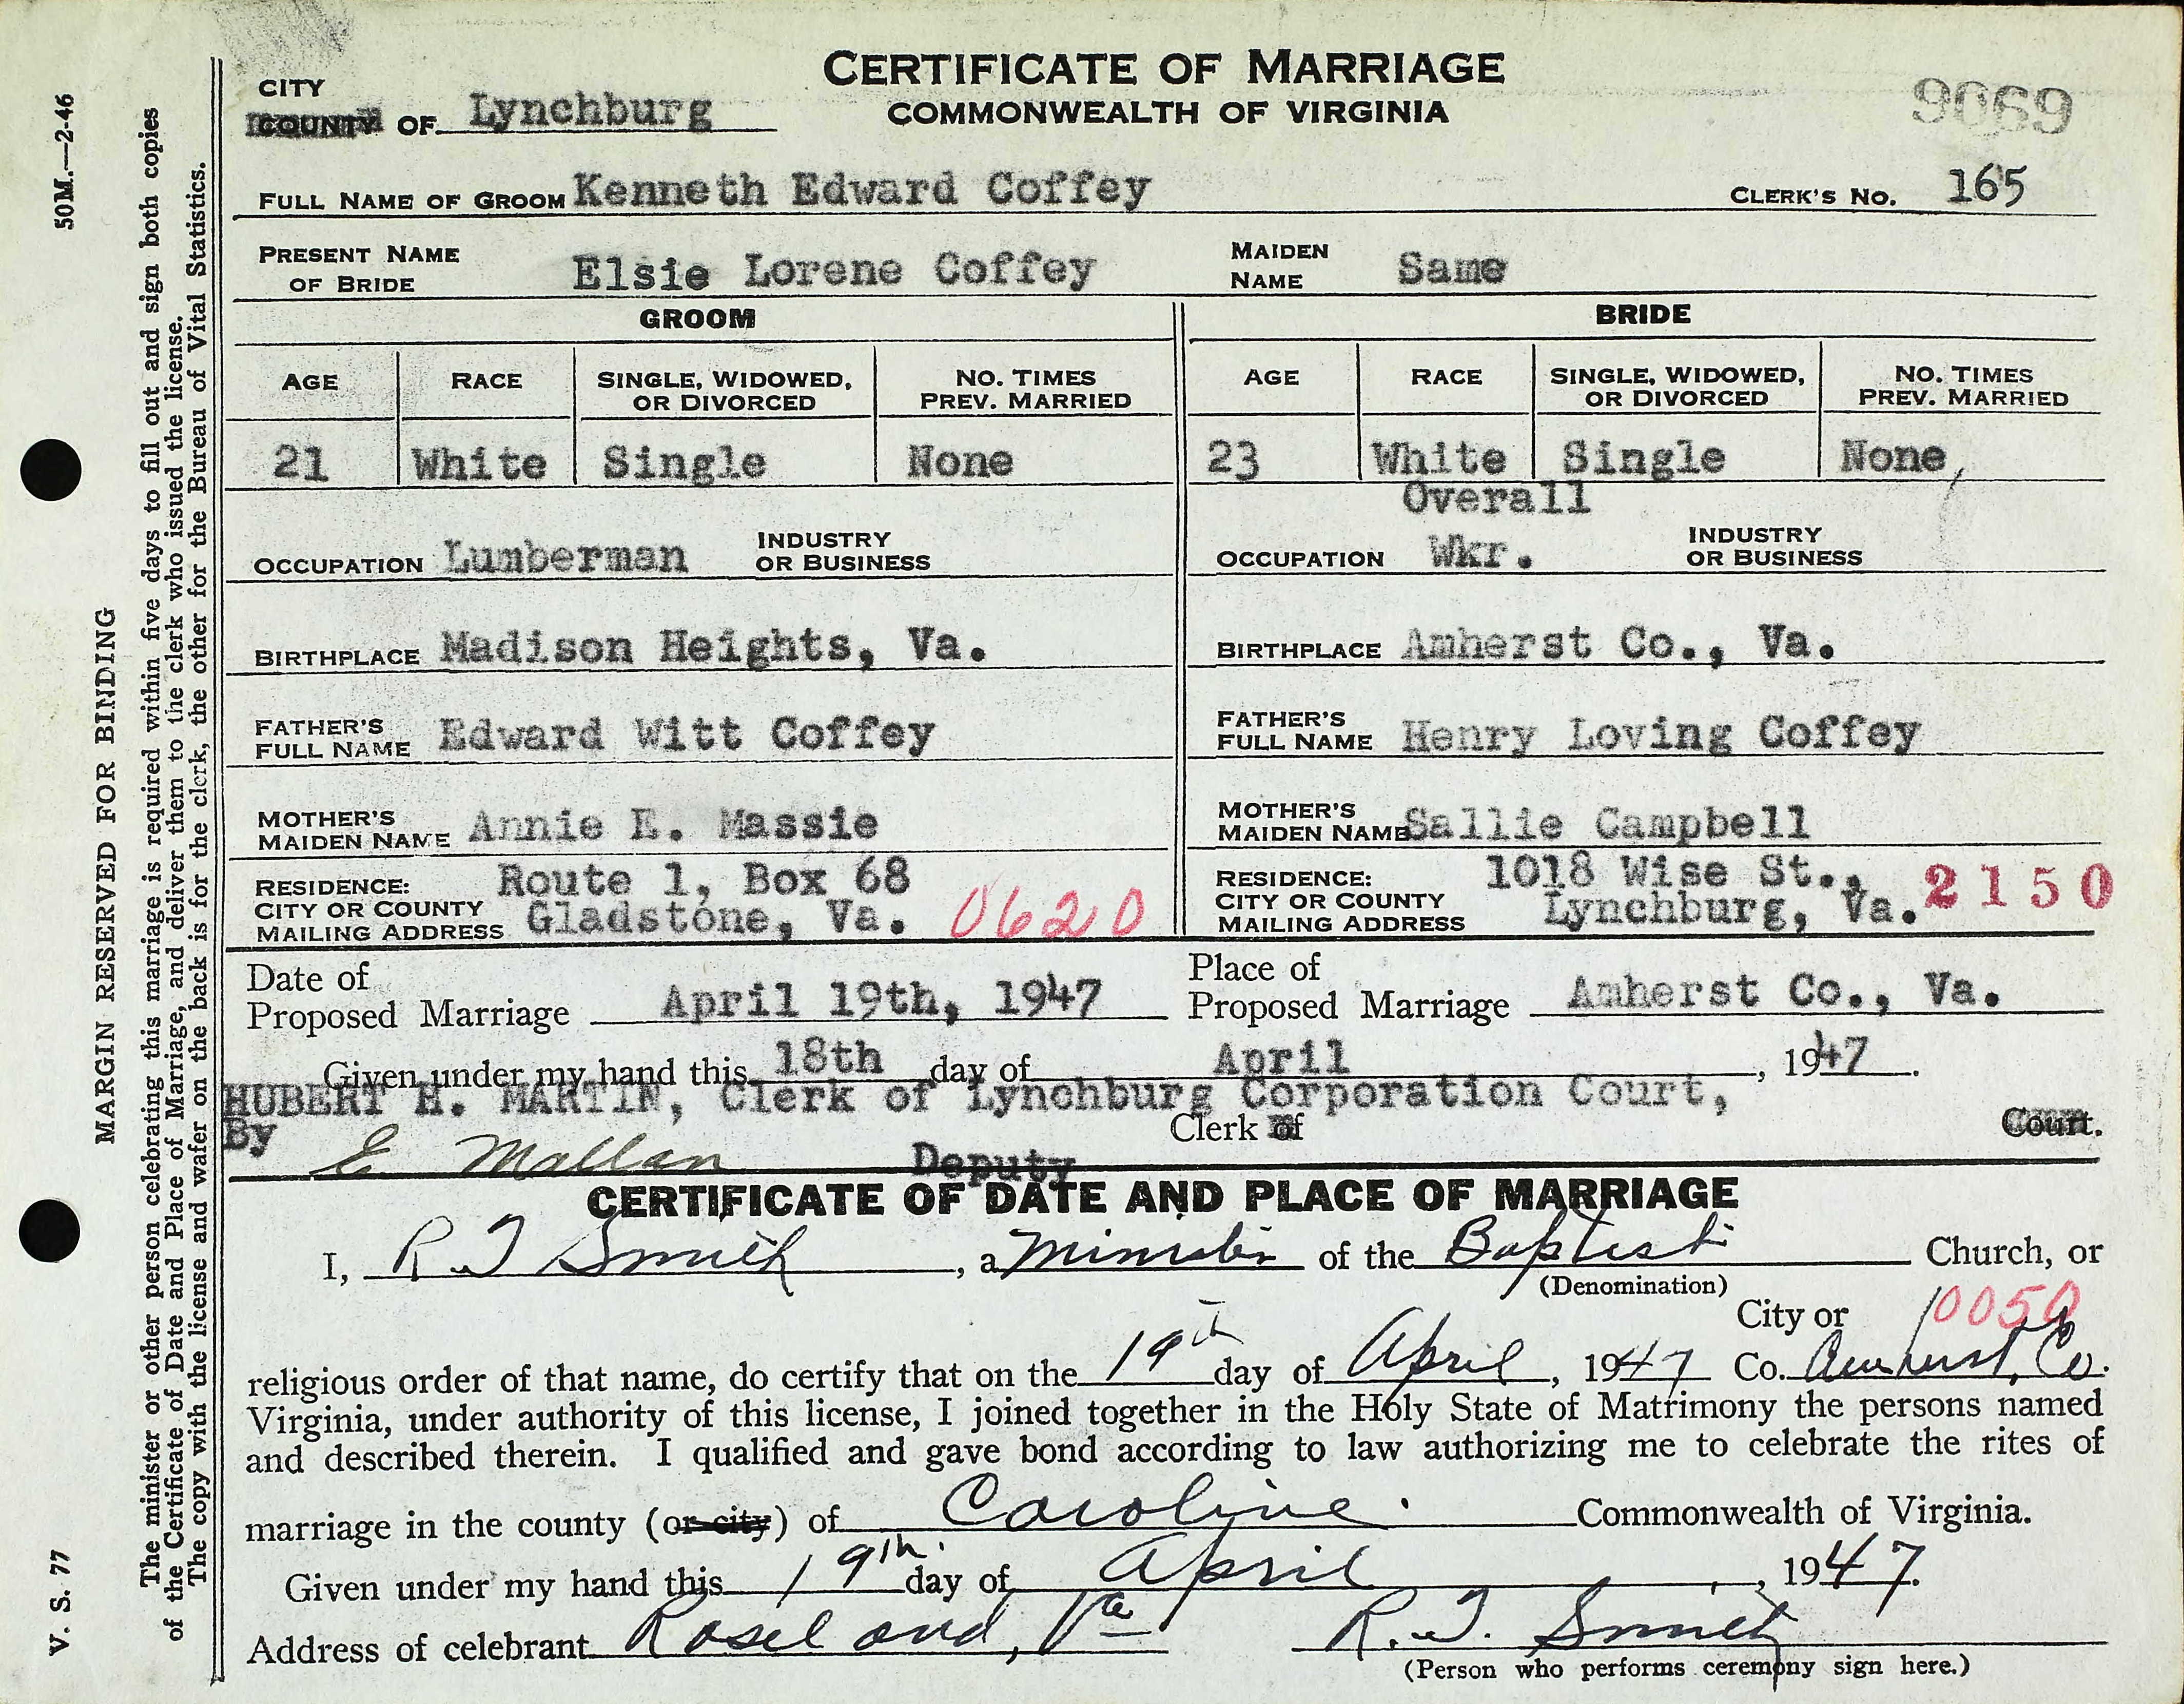 50M.—2-46
MARGIN RESERVED FOR BINDING
V. S. 77
The minister or other person celebrating this marriage is required within five days to fill out and sign both copies
of the Certificate of Date and Place of Marriage, and deliver them to the clerk who issued the license.
The copy with the license and wafer on the back is for the clerk, the other for the Bureau of Vital Statistics.
CERTIFICATE OF MARRIAGE
COMMONWEALTH OF VIRGINIA
9069
CITY
COUNTY OF Lynchburg
FULL NAME OF GROOM Kenneth Edward Coffey CLERK'S No. 165
PRESENT NAME OF BRIDE Elsie Lorene Coffey MAIDEN NAME Same
GROOM BRIDE
AGE RACE SINGLE, WIDOWED, OR DIVORCED NO. TIMES PREV. MARRIED AGE RACE SINGLE, WIDOWED, OR DIVORCED NO. TIMES PREV. MARRIED
21 White Single None 23 White Single None
OCCUPATION Lumberman INDUSTRY OR BUSINESS OCCUPATION Overall Wkr. INDUSTRY OR BUSINESS
BIRTHPLACE Madison Heights, Va. BIRTHPLACE Amherst Co., Va.
FATHER'S FULL NAME Edward Witt Coffey FATHER'S FULL NAME Henry Loving Coffey
MOTHER'S MAIDEN NAME Annie E. Massie MOTHER'S MAIDEN NAME Sallie Campbell
RESIDENCE: CITY OR COUNTY MAILING ADDRESS Route 1, Box 68 Gladstone, Va. 0620 RESIDENCE: CITY OR COUNTY MAILING ADDRESS 1018 Wise St., Lynchburg, Va. 2150
Date of Proposed Marriage April 19th, 1947 Place of Proposed Marriage Amherst Co., Va.
Given under my hand this 18th day of April, 1947.
HUBERT H. MARTIN, Clerk of Lynchburg Corporation Court,
Clerk of Court.
By E Mallan Deputy
CERTIFICATE OF DATE AND PLACE OF MARRIAGE
I, R T Smith, a Minister of the Baptist Church, or
(Denomination)
City or 10050
religious order of that name, do certify that on the 19th day of April, 1947 Co. Amherst, Co.
Virginia, under authority of this license, I joined together in the Holy State of Matrimony the persons named
and described therein. I qualified and gave bond according to law authorizing me to celebrate the rites of
marriage in the county (or city) of Caroline. Commonwealth of Virginia.
Given under my hand this 19th. day of April, 1947.
Address of celebrant Roseland, Va R. T. Smith
(Person who performs ceremony sign here.)